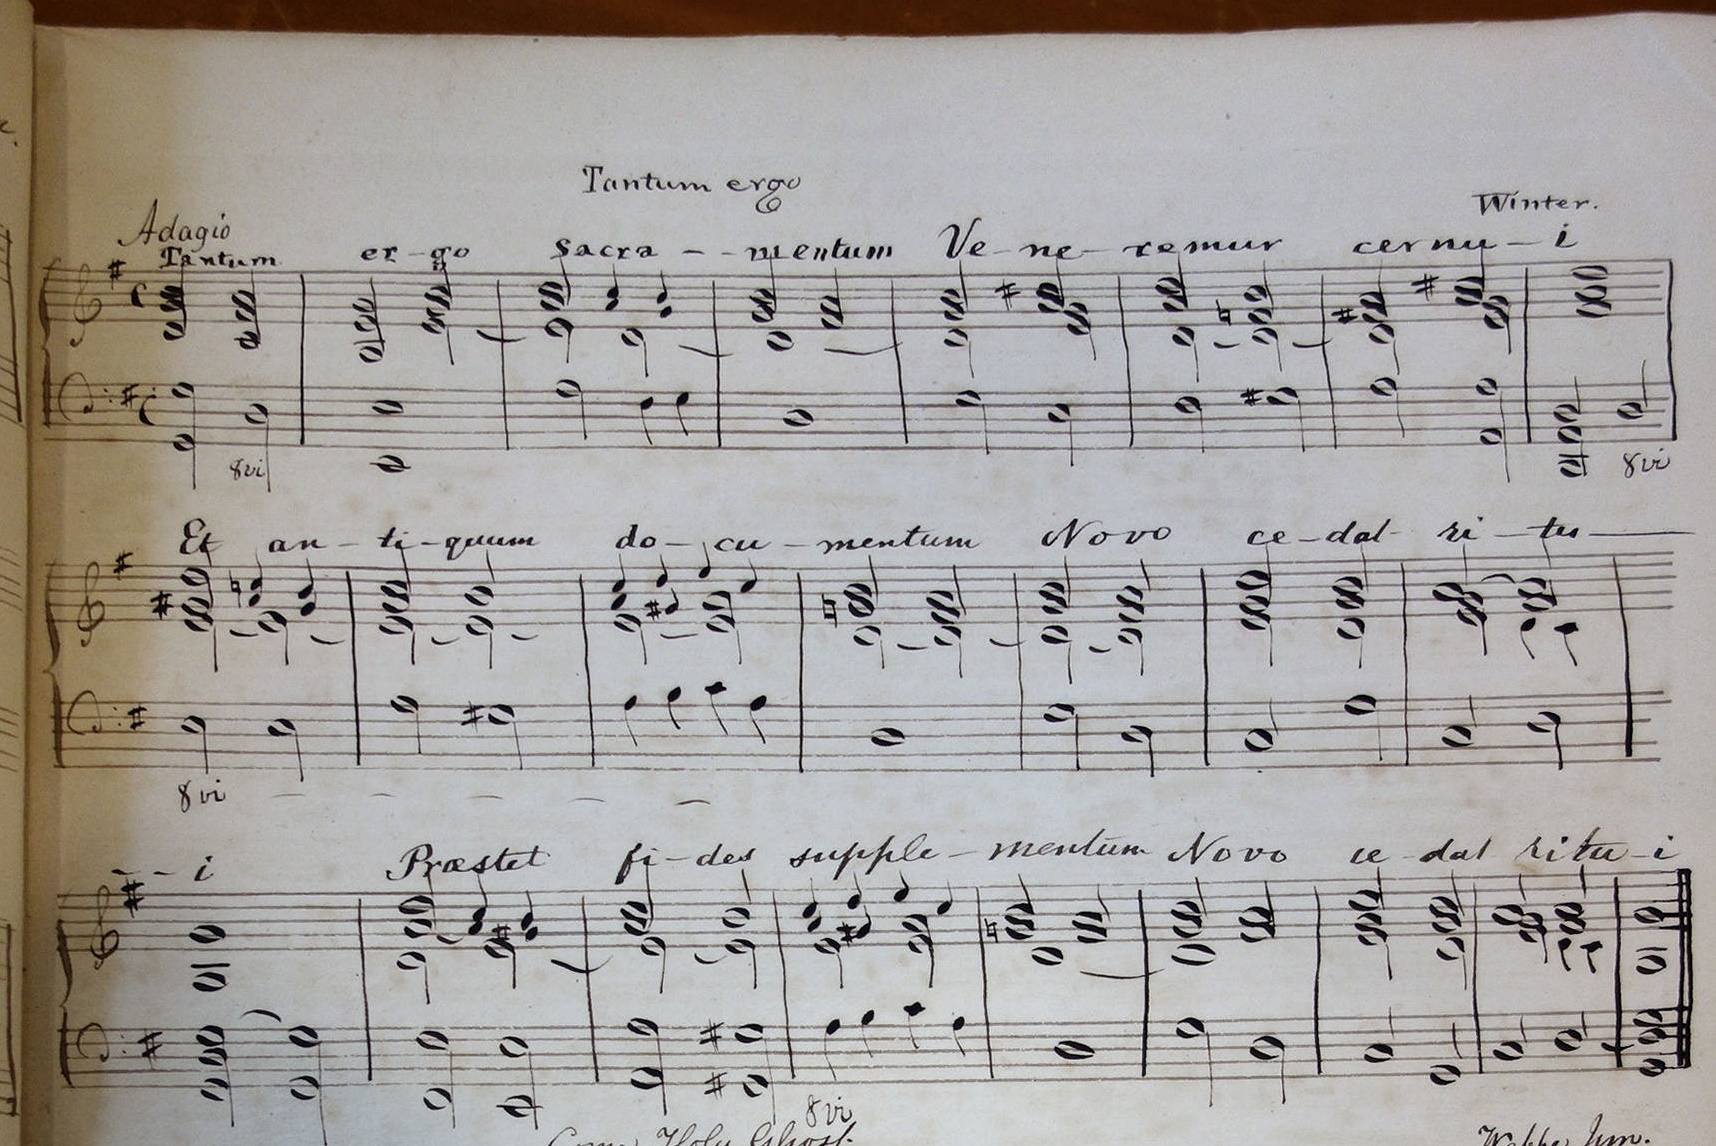 Tantum ergo
Winter.
Adagio
Tantum er-go Sacra - - mentum Ve-ne-remur cernu-i
8vi 8vi
Et an-ti-quum do-cu-mentum Novo ce-dat ri-tu
8vi
- - i Præstet fi-des supple-mentum Novo ce-dat ritu-i
8vi
Come Holy Ghost.
Webbe Jun.